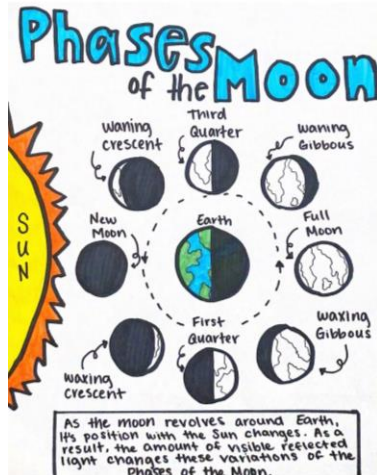 Phases
of the Moon
Waning
Crescent
Third
Quarter
Waning
Gibbous
SUN
New
Moon
Earth
Full
Moon
Waxing
Crescent
First
Quarter
Waxing
Gibbous
As the moon revolves around Earth,
it's position with the Sun changes. As a
result, the amount of visible reflected
light changes these variations of the
Phases of the Moon.